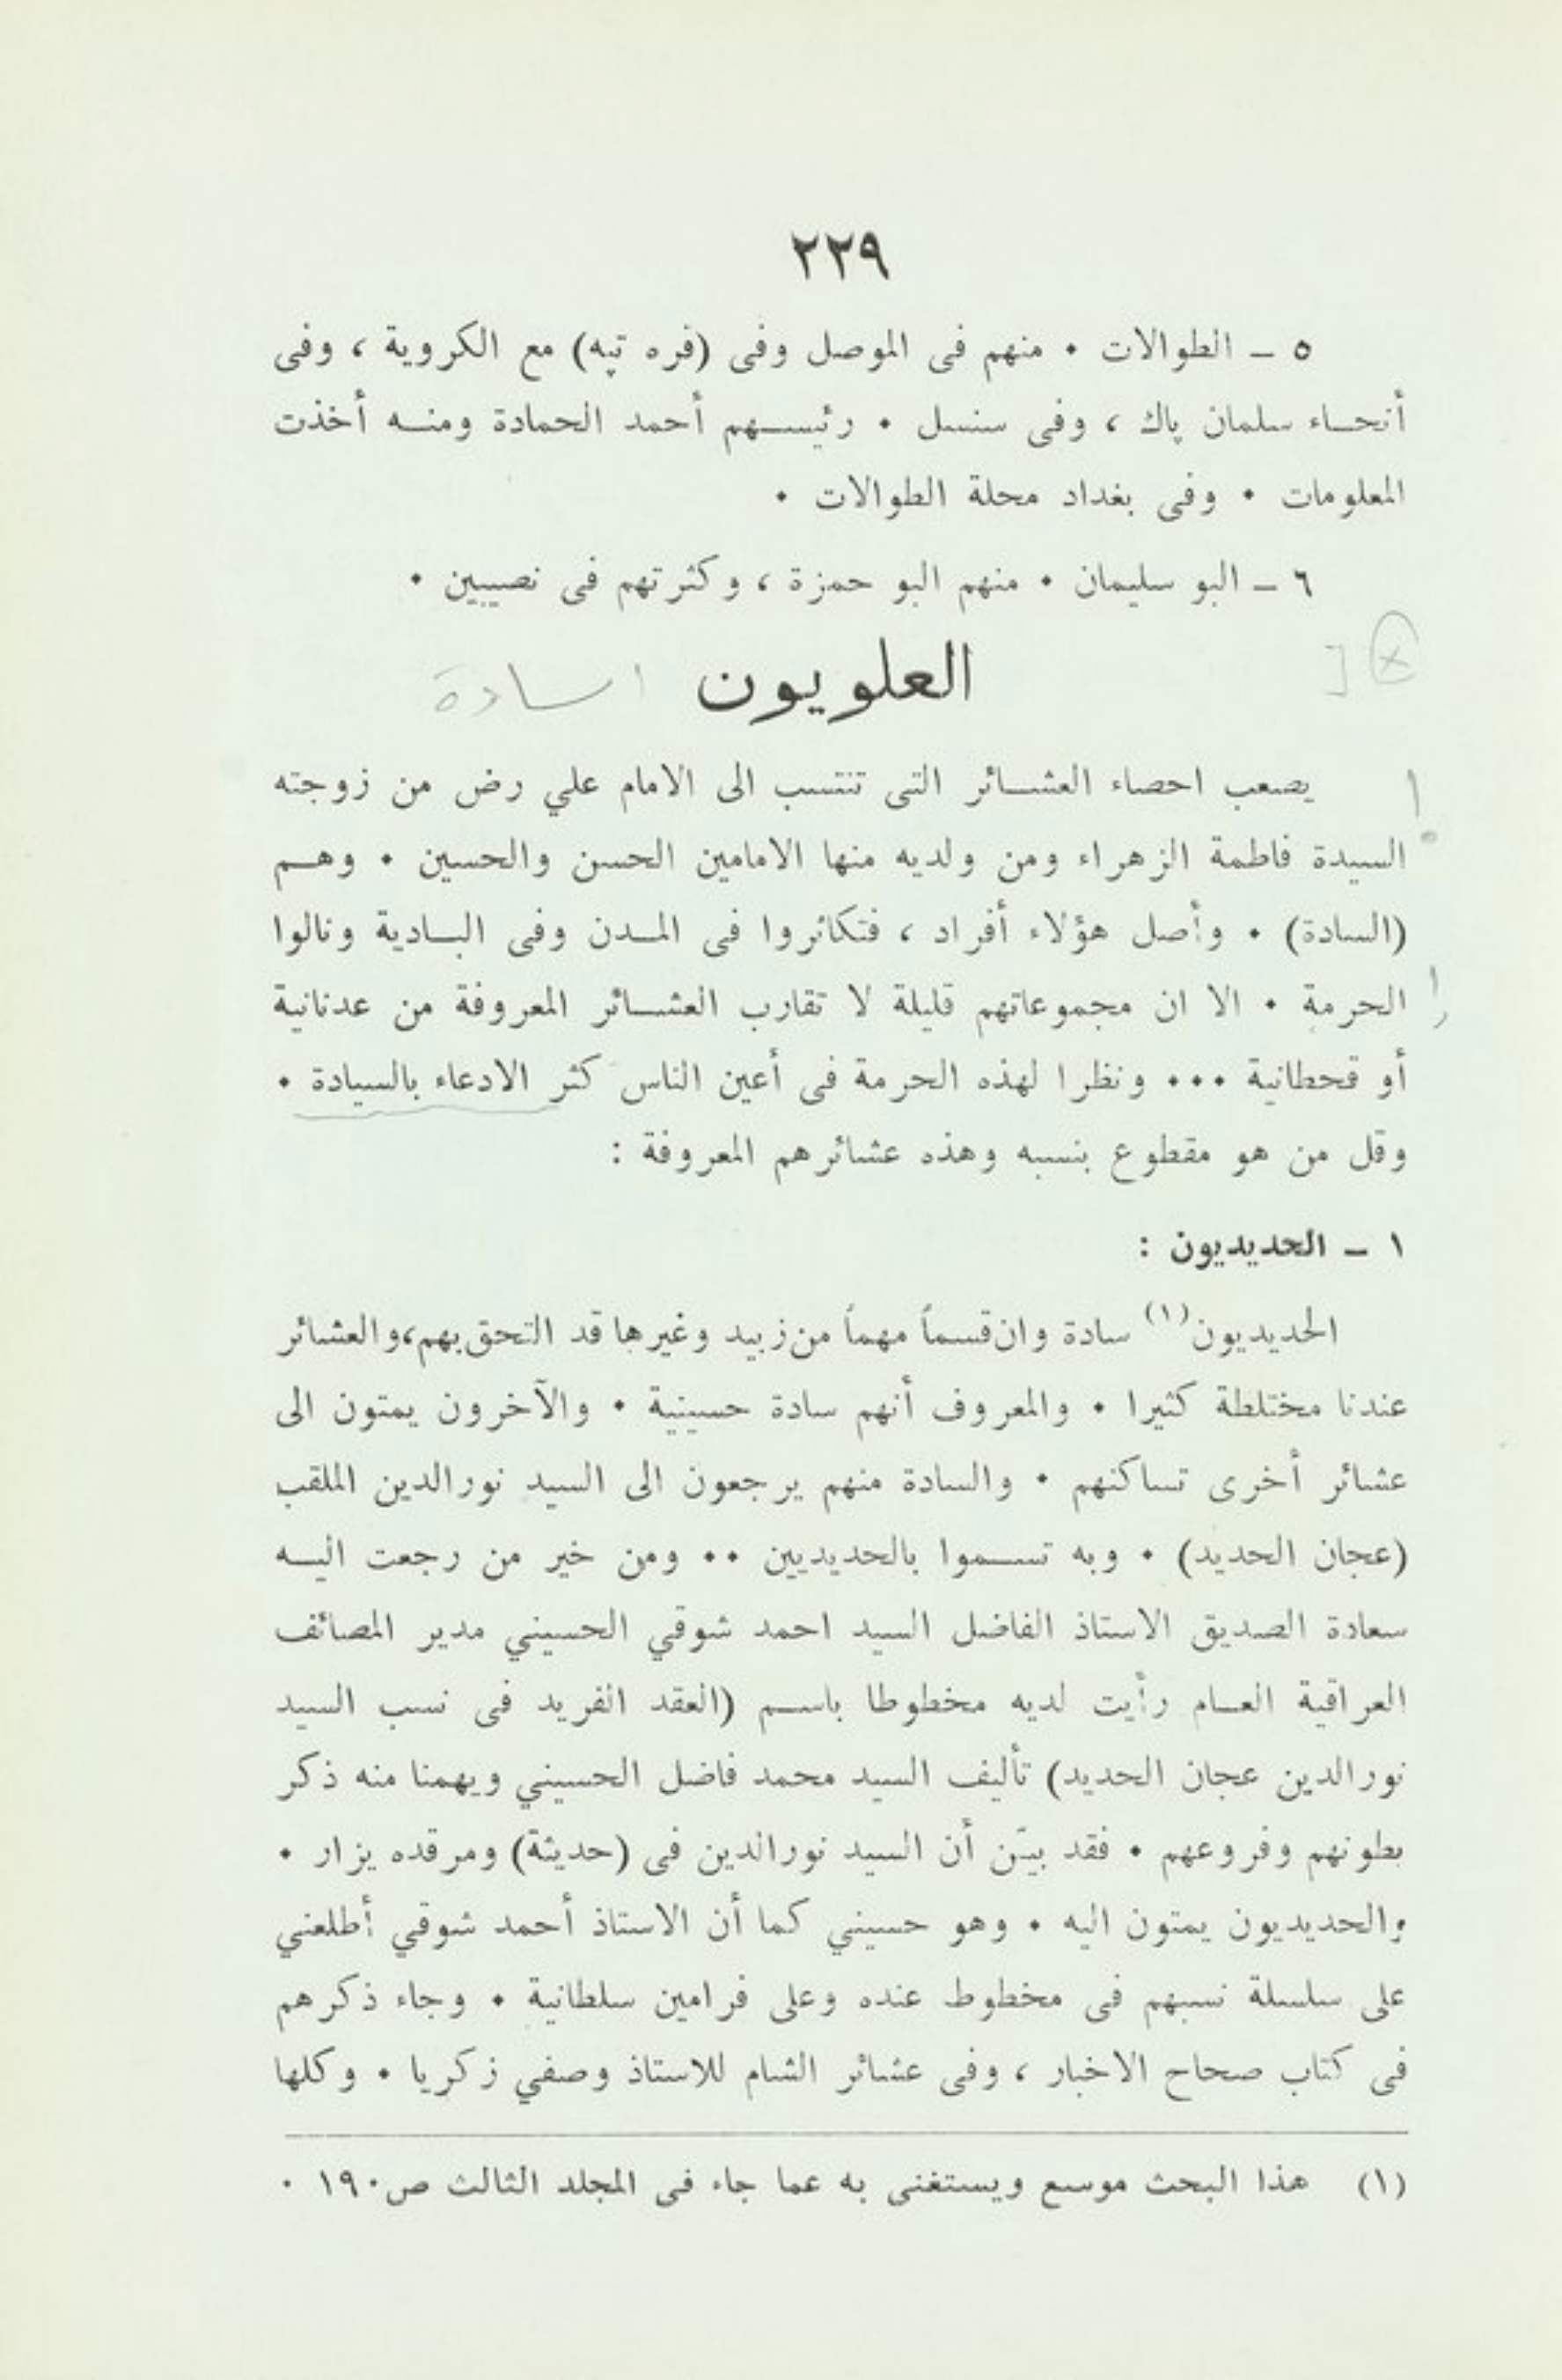 ٢٢٩
٥ ـ الطوالات • منهم فى الموصل وفى (قره تپه) مع الكروية ، وفى
أنحـاء سلمان پاك ، وفى سنسل • رئيسـهم أحمد الحمادة ومنـه أخذت
المعلومات • وفى بغداد محلة الطوالات •
٦ ـ البو سليمان • منهم البو حمزة ، وكثرتهم فى نصيبين •
العلويون اسادة
يصعب احصاء العشـائر التى تنتسب الى الامام علي رض من زوجته
السيدة فاطمة الزهراء ومن ولديه منها الامامين الحسن والحسين • وهـم
(السادة) • وأصل هؤلاء أفراد ، فتكاثروا فى المـدن وفى البـادية ونالوا
الحرمة • الا ان مجموعاتهم قليلة لا تقارب العشـائر المعروفة من عدنانية
أو قحطانية ••• ونظرا لهذه الحرمة فى أعين الناس كثر الادعاء بالسيادة •
وقل من هو مقطوع بنسبه وهذه عشائرهم المعروفة :
١ ـ الحديديون :
الحديديون(١) سادة وان قسماً مهماً من زبيد وغيرها قد التحق بهم،والعشائر
عندنا مختلطة كثيرا • والمعروف أنهم سادة حسينية • والآخرون يمتون الى
عشائر أخرى تساكنهم • والسادة منهم يرجعون الى السيد نورالدين الملقب
(عجان الحديد) • وبه تسـموا بالحديديين •• ومن خير من رجعت اليـه
سعادة الصديق الاستاذ الفاضل السيد احمد شوقي الحسيني مدير المصائف
العراقية العـام رأيت لديه مخطوطا باسـم (العقد الفريد فى نسب السيد
نورالدين عجان الحديد) تأليف السيد محمد فاضل الحسيني ويهمنا منه ذكر
بطونهم وفروعهم • فقد بيّن أن السيد نورالدين فى (حديثة) ومرقده يزار •
والحديديون يمتون اليه • وهو حسيني كما أن الاستاذ أحمد شوقي أطلعني
على سلسلة نسبهم فى مخطوط عنده وعلى فرامين سلطانية • وجاء ذكرهم
فى كتاب صحاح الاخبار ، وفى عشائر الشام للاستاذ وصفي زكريا • وكلها
(١) هذا البحث موسع ويستغنى به عما جاء فى المجلد الثالث ص١٩٠ •